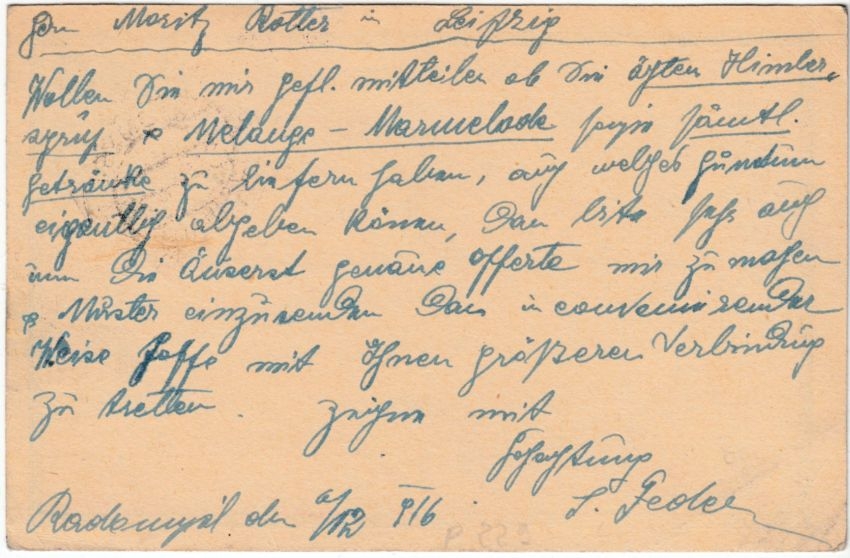 Herrn Moritz Rotter in Leipzig
Wollen Sie mir gefl. mitteilen ob Sie äßten Himber-
syrup & Melange - Marmelade sowie sämtl.
Getränke zu liefern haben, auch welches
eigentlich abgeben können, dan bite sehr auch
um die äuserst genaue Offerte mir zu machen
& Muster einzusenden dan in convenirender
Weise hoffe mit Ihnen größeren Verbindung
zu tretten. Zeichne mit
Hochachtung
Radomyśl den 6/12 916 S. Feder